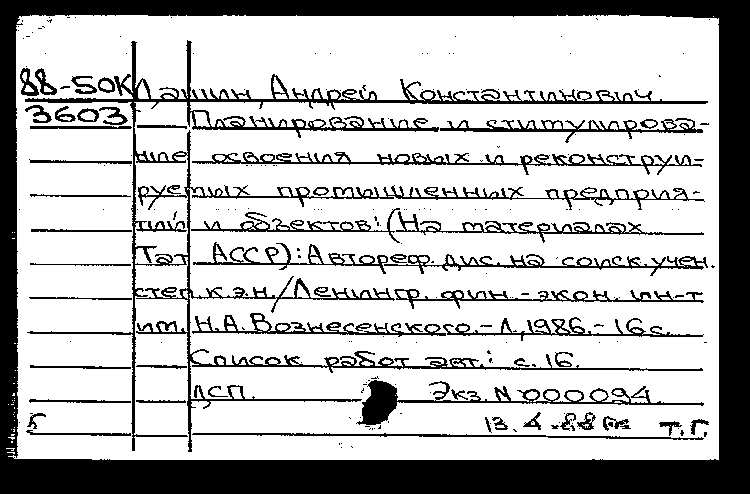 88-50К Лашин, Андрей Константинович.
3603 Планирование и стимулирова-
ние освоения новых и реконструи-
руемых промышленных предприя-
тий и объектов: (На материалах
Тат АССР): Автореф. дис. на соиск. учен.
степ. к.э.н. / Ленингр. фин.-экон. ин-т
им. Н.А. Вознесенского. - Л, 1986. - 16 с.
Список работ авт.: с. 16.
ДСП. Экз. N 000094.
5 13.4-88 Т.Г.